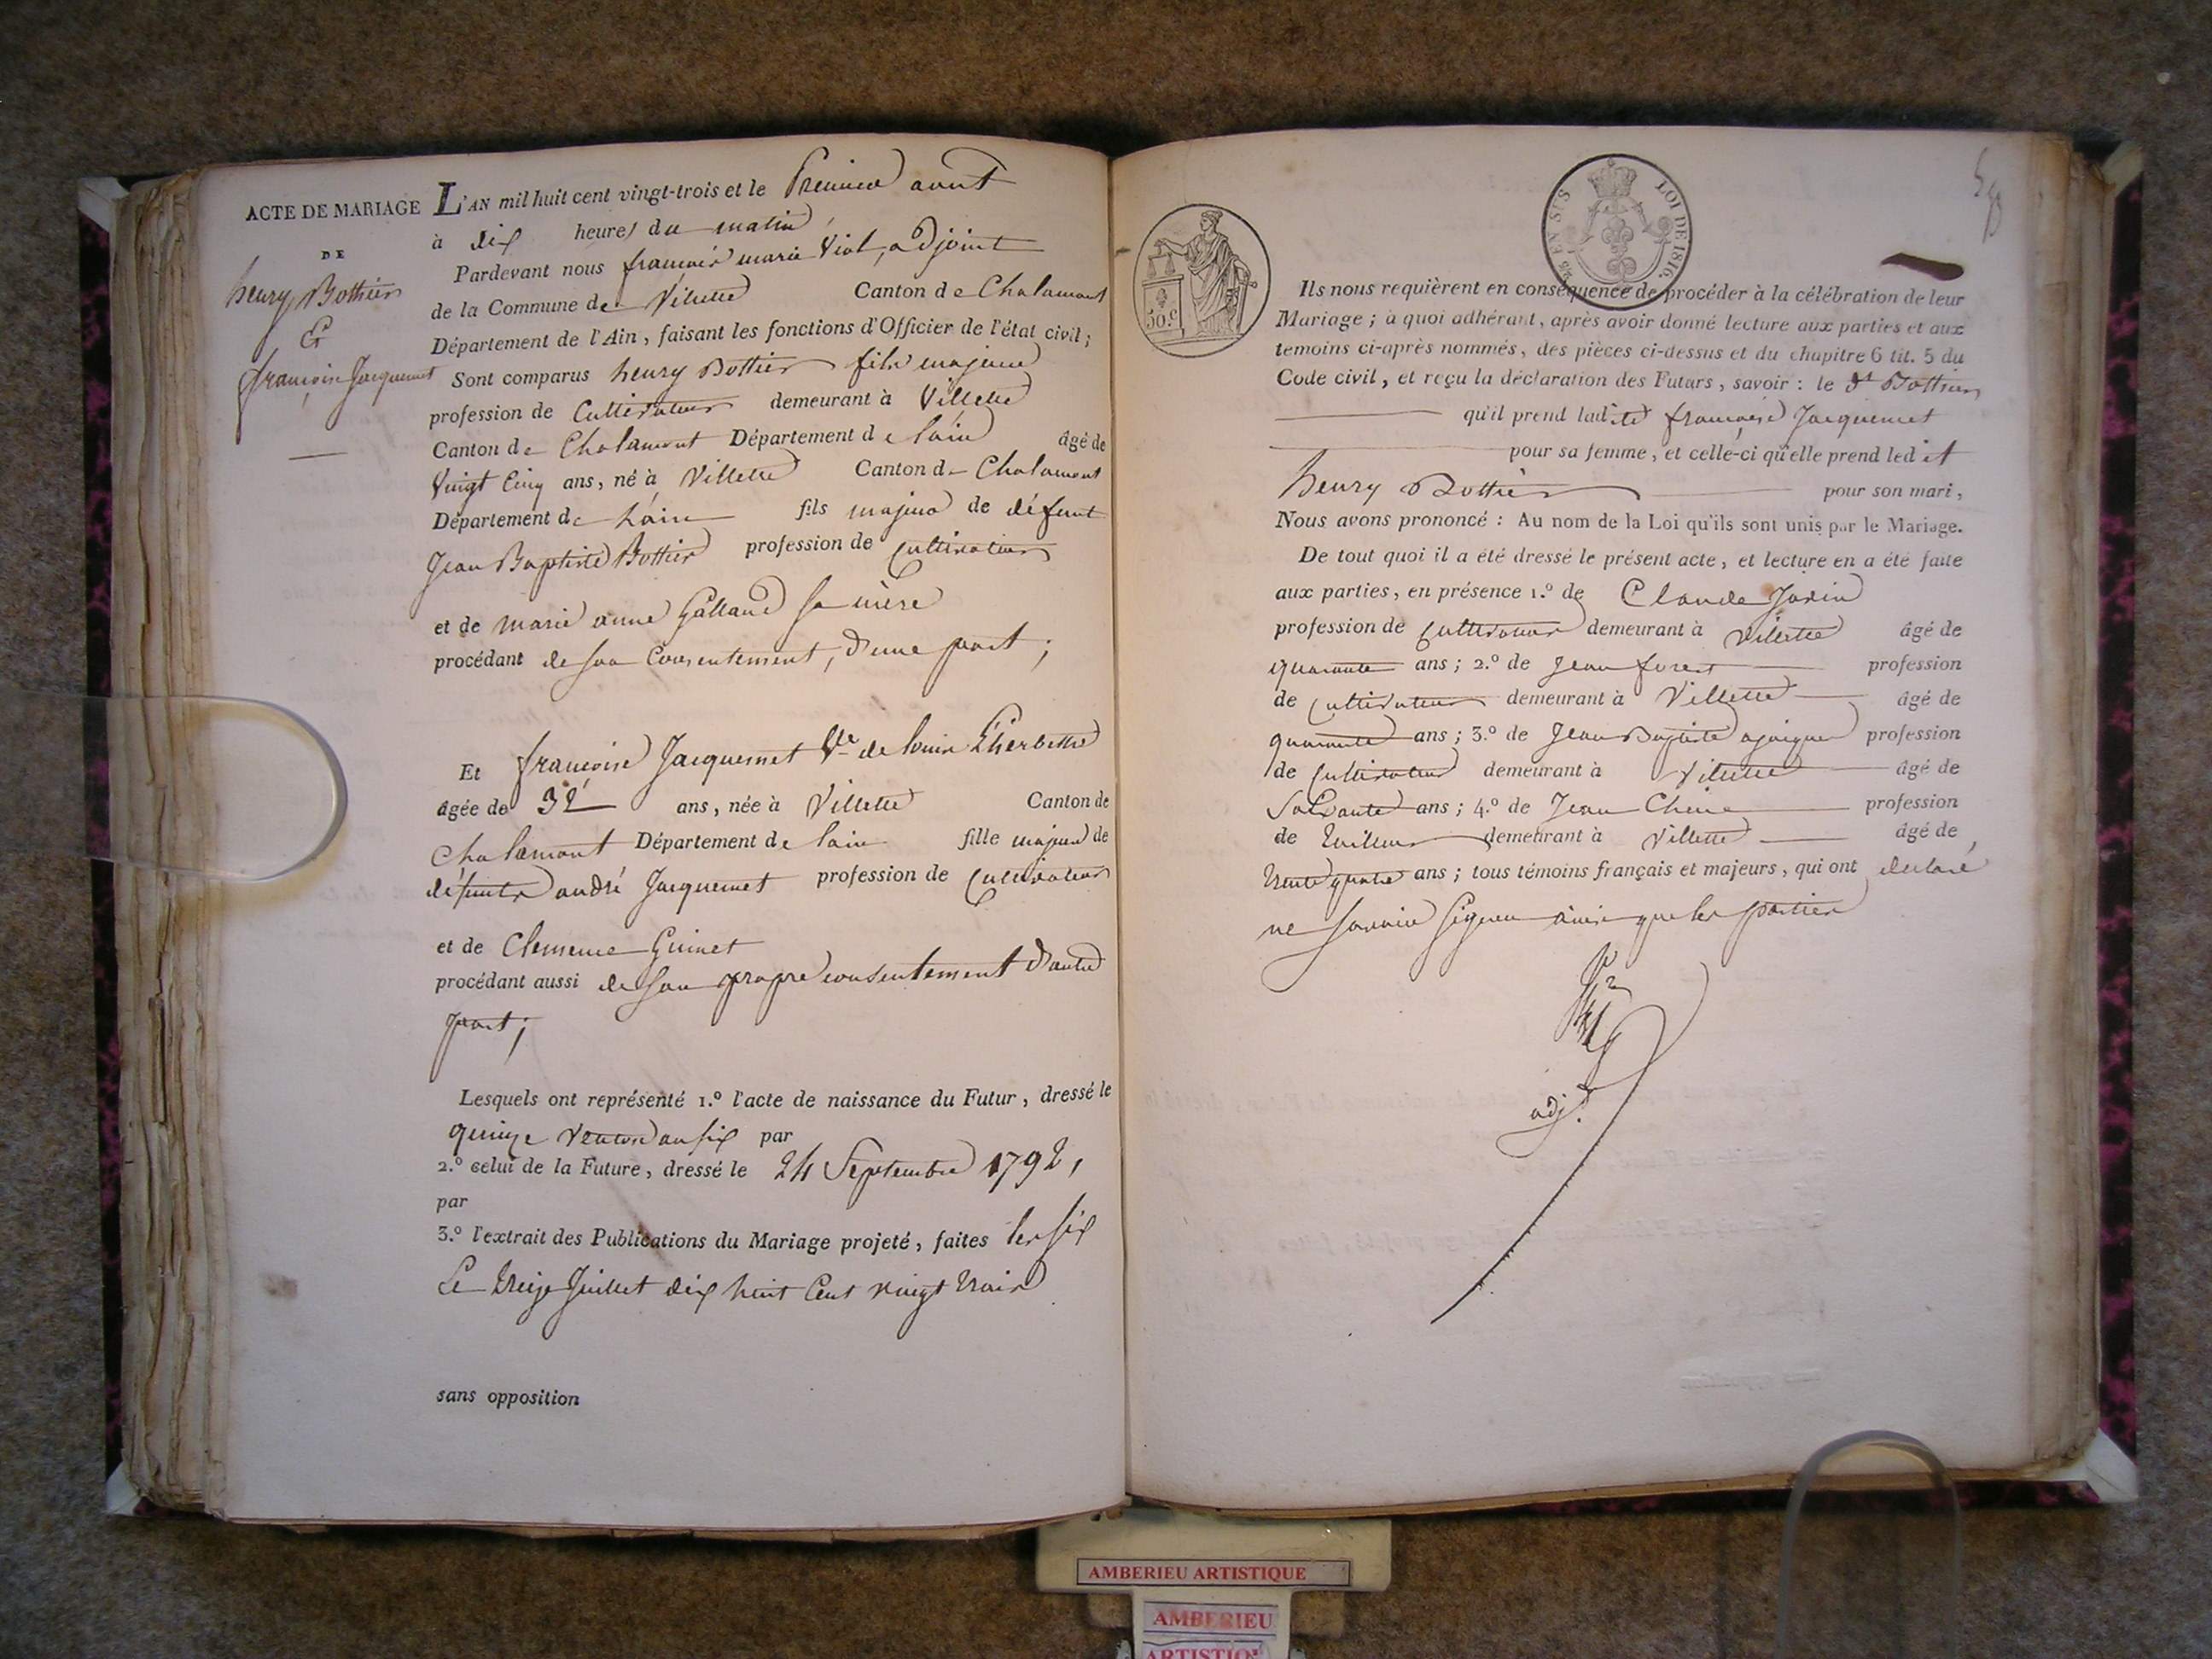 ACTE DE MARIAGE
DE
henry Bottier
Et
françoise Jacquemet
L'AN mil huit cent vingt-trois et le Premier aout
à dix heures du matin
Pardevant nous françois marie Viol, adjoint
de la Commune de Villette Canton de Chalamont
Département de l'Ain, faisant les fonctions d'Officier de l'état civil;
Sont comparus henry Bottier fils majeur
profession de Cultivateur demeurant à Villette
Canton de Chalamont Département de lain âgé de
Vingt Cinq ans, né à Villette Canton de Chalamont
Département de Lain fils majeur de défunt
Jean Baptiste Bottier profession de Cultivateur
et de marie anne Galland sa mère
procédant de son Consentement, d'une part;
Et françoise Jacquemet Ve de louis Lherbette
âgée de 32 ans, née à Villette Canton de
Chalamont Département de lain fille majeure de
défunts andré Jacquemet profession de Cultivateur
et de Clemence Guinet
procédant aussi de son propre consentement d'autre
part;
Lesquels ont représenté 1.º l'acte de naissance du Futur, dressé le
quinze Ventose an six par
2.º celui de la Future, dressé le 24 Septembre 1792,
par
3.º l'extrait des Publications du Mariage projeté, faites les six
Le treize Juillet dix huit Cent vingt trois
sans opposition
50.c
EN SUS
LOI DE 1816.
Ils nous requièrent en conséquence de procéder à la célébration de leur
Mariage; à quoi adhérant, après avoir donné lecture aux parties et aux
temoins ci-après nommés, des pièces ci-dessus et du chapitre 6 tit. 5 du
Code civil, et reçu la déclaration des Futurs, savoir: le dt Bottier
qu'il prend ladite françoise Jacquemet
pour sa femme, et celle-ci qu'elle prend ledit
henry Bottier pour son mari,
Nous avons prononcé: Au nom de la Loi qu'ils sont unis par le Mariage.
De tout quoi il a été dressé le présent acte, et lecture en a été faite
aux parties, en présence 1.º de Claude Jarin
profession de Cultivateur demeurant à Villette âgé de
quarante ans; 2.º de Jean forest profession
de Cultivateur demeurant à Villette âgé de
quarante ans; 3.º de Jean Baptiste profession
de Cultivateur demeurant à Villette âgé de
Soixante ans; 4.º de Jean Chene profession
de tailleur demeurant à Villette âgé de
trente quatre ans; tous témoins français et majeurs, qui ont declaré
ne savoir signer ainsi que les parties
adj.t
AMBERIEU ARTISTIQUE
AMBERIEU
ARTISTIQUE